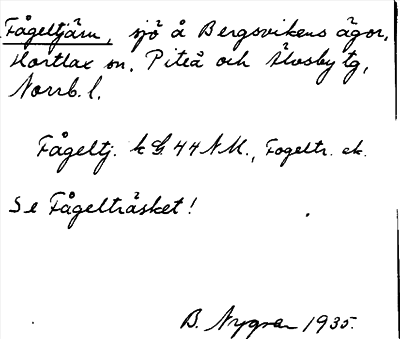 Fågeltjärn, sjö å Bergsvikens ägor,
Hortlax sn. Piteå och Älvsby tg,
Norrb. l.
Fågeltj. k G. 44 N M., Fogeltr. ek.
Se Fågelträsket!
B. Nygren 1935.